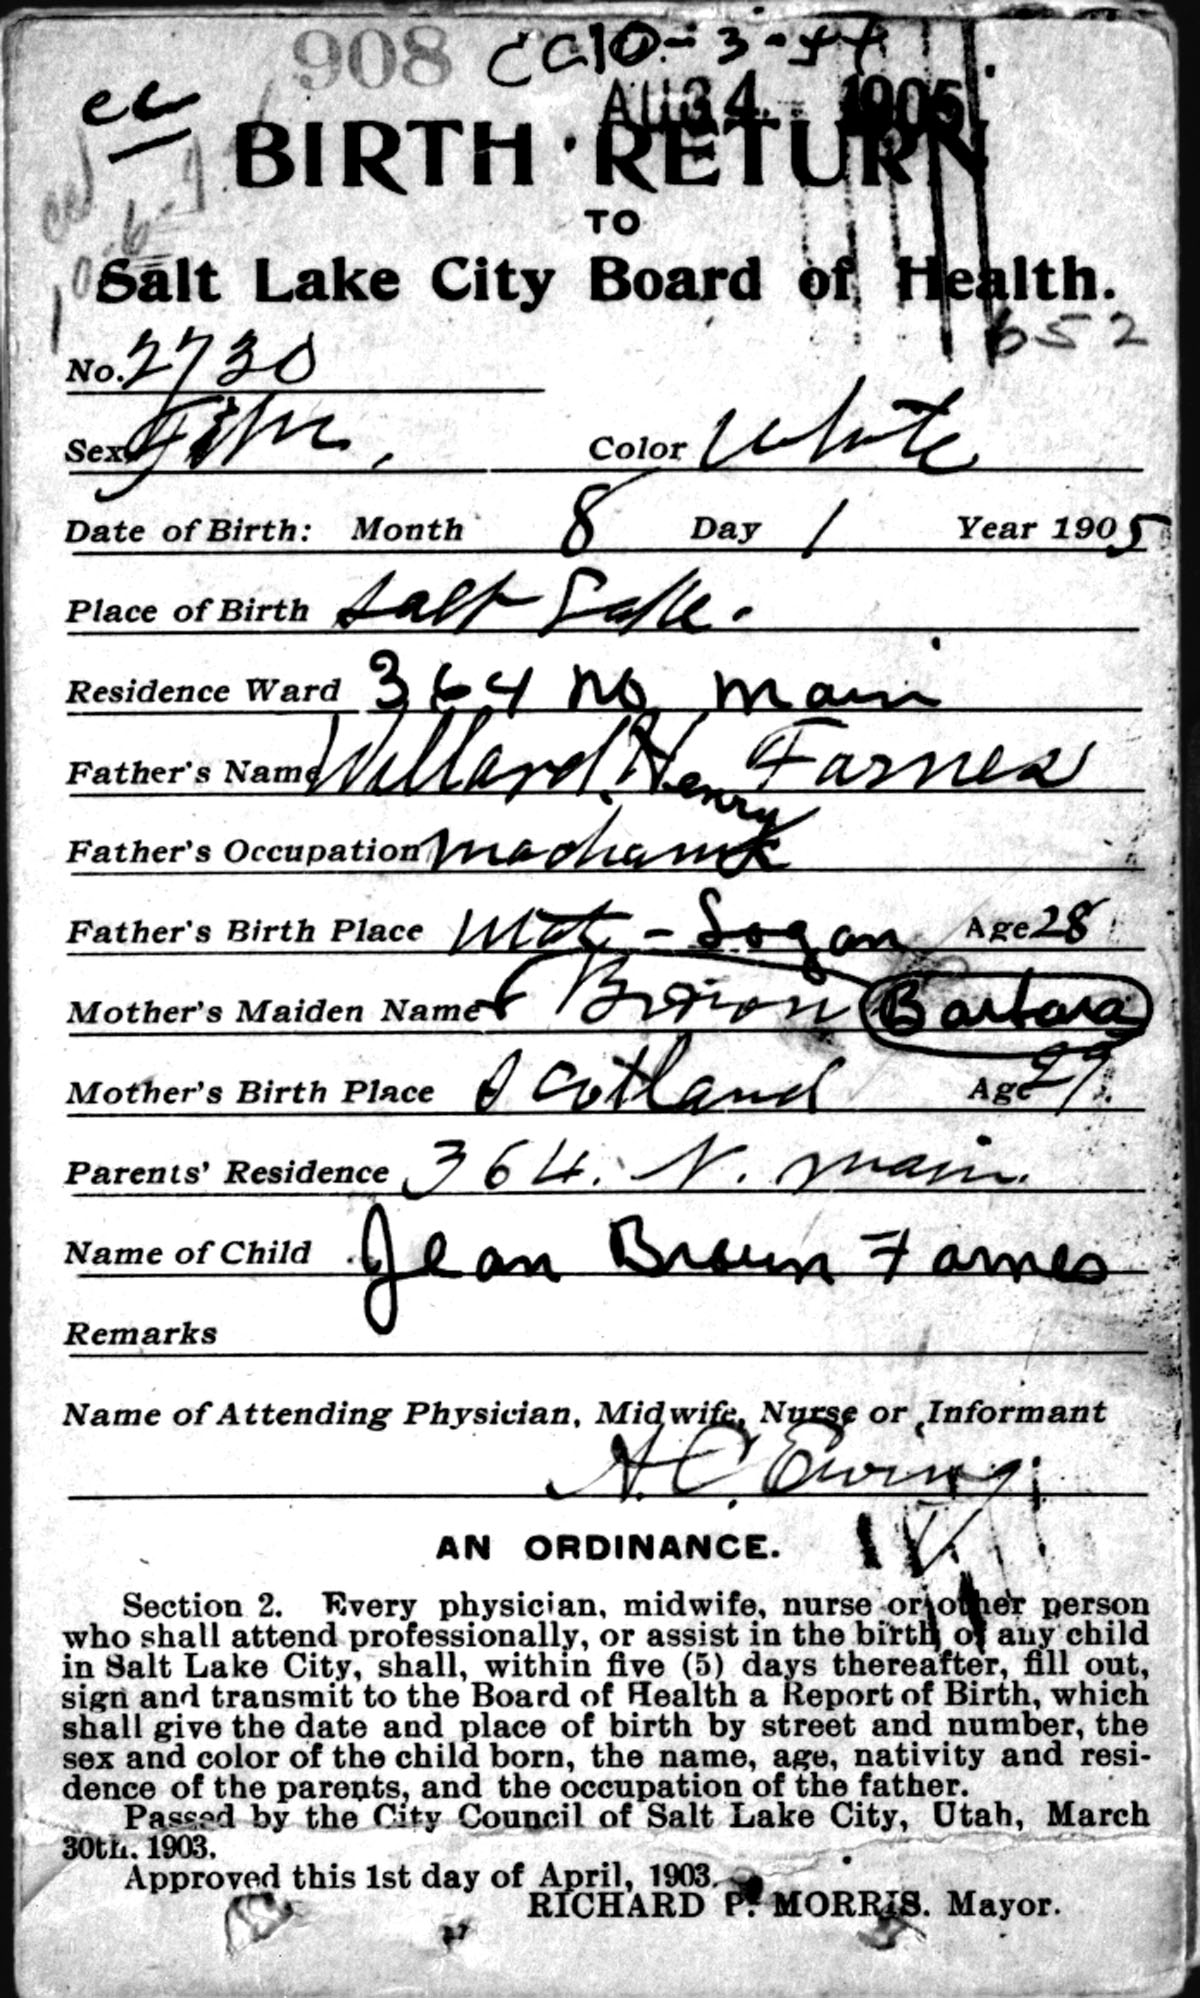 908 CC10-3-44
AUG 4 1905
cc
BIRTH RETURN
TO
Salt Lake City Board of Health.
652
No. 2730
Sex Fem. Color White
Date of Birth: Month 8 Day 1 Year 1905
Place of Birth Salt Lake.
Residence Ward 364 No Main
Father's Name Willard Henry Farnes
Father's Occupation Machanick
Father's Birth Place Utah - Logan Age 28
Mother's Maiden Name Brown Barbara
Mother's Birth Place Scotland Age 27.
Parents' Residence 364. N. Main.
Name of Child Jean Brown Farnes
Remarks
Name of Attending Physician, Midwife, Nurse or Informant
H. C. Ewing
AN ORDINANCE.
Section 2. Every physician, midwife, nurse or other person
who shall attend professionally, or assist in the birth of any child
in Salt Lake City, shall, within five (5) days thereafter, fill out,
sign and transmit to the Board of Health a Report of Birth, which
shall give the date and place of birth by street and number, the
sex and color of the child born, the name, age, nativity and resi-
dence of the parents, and the occupation of the father.
Passed by the City Council of Salt Lake City, Utah, March
30th, 1903.
Approved this 1st day of April, 1903.
RICHARD P. MORRIS. Mayor.